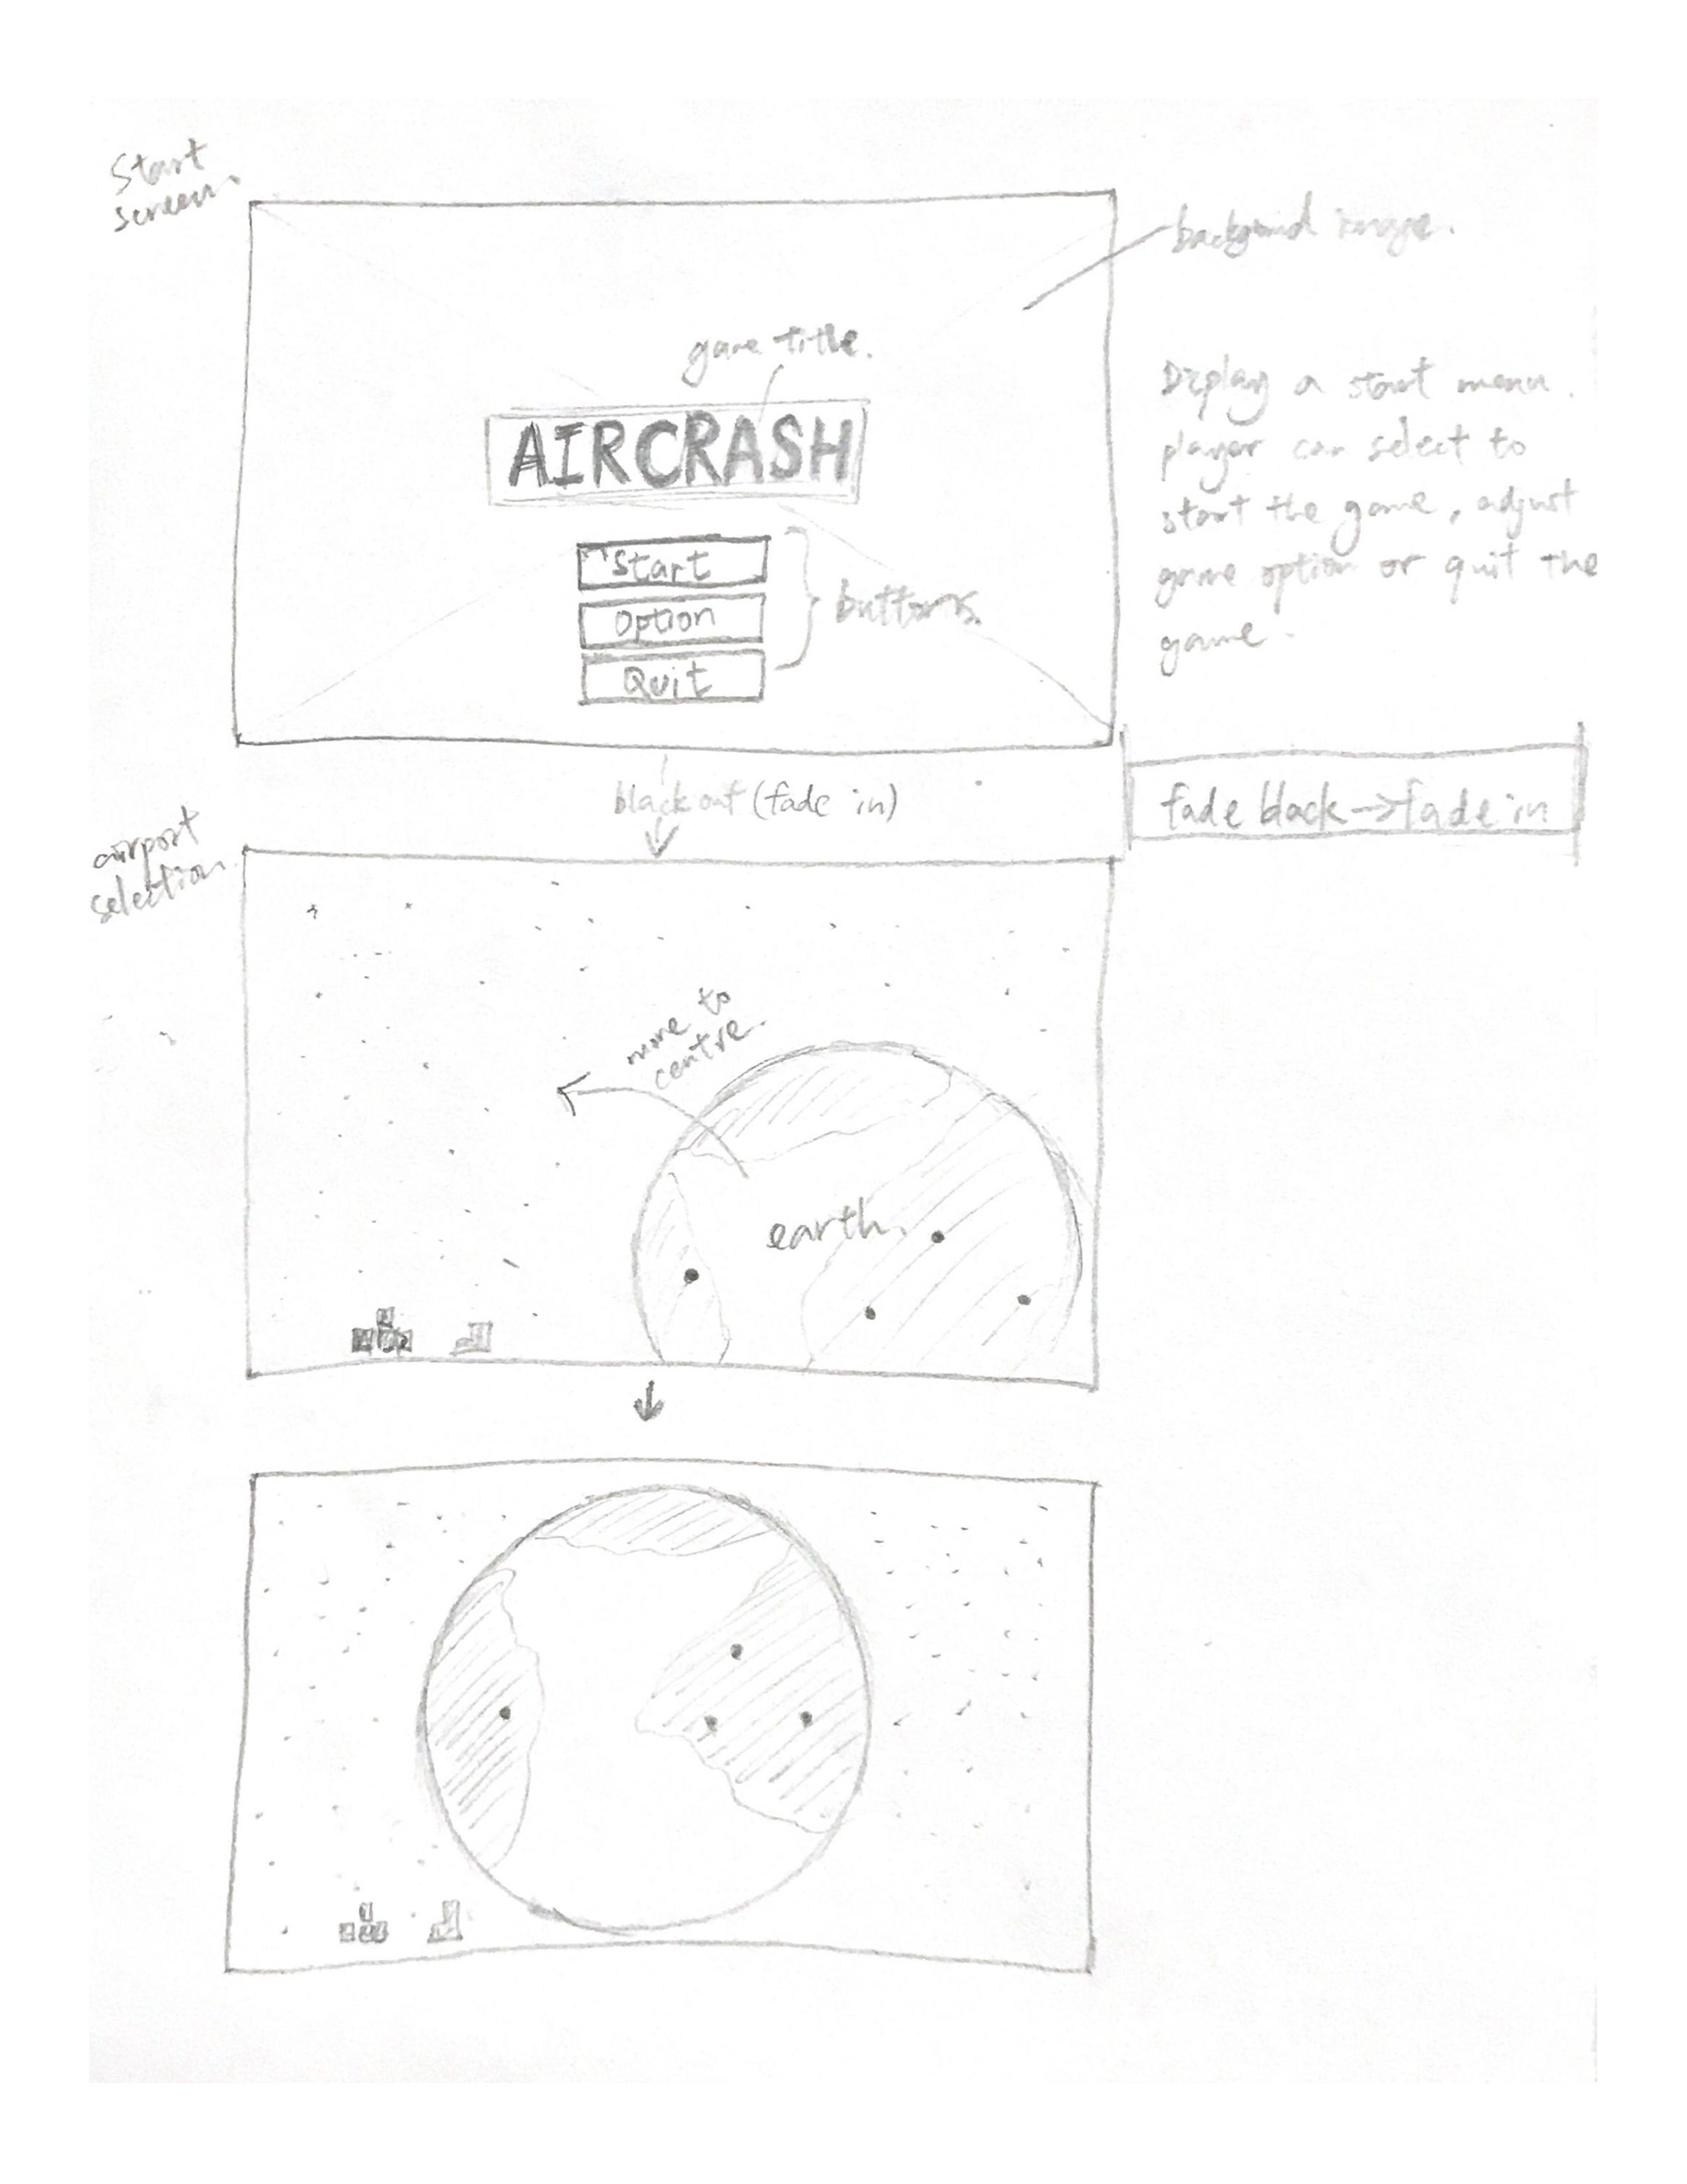 Start
screen.
backgound image.
game title.
AIRCRASH
Start
Option
Quit
buttons.
Diplay a start menu.
player can select to
start the game, adjust
game option or quit the
game.
black out (fade in)
fade black → fade in
airport
selection.
move to
centre.
earth.